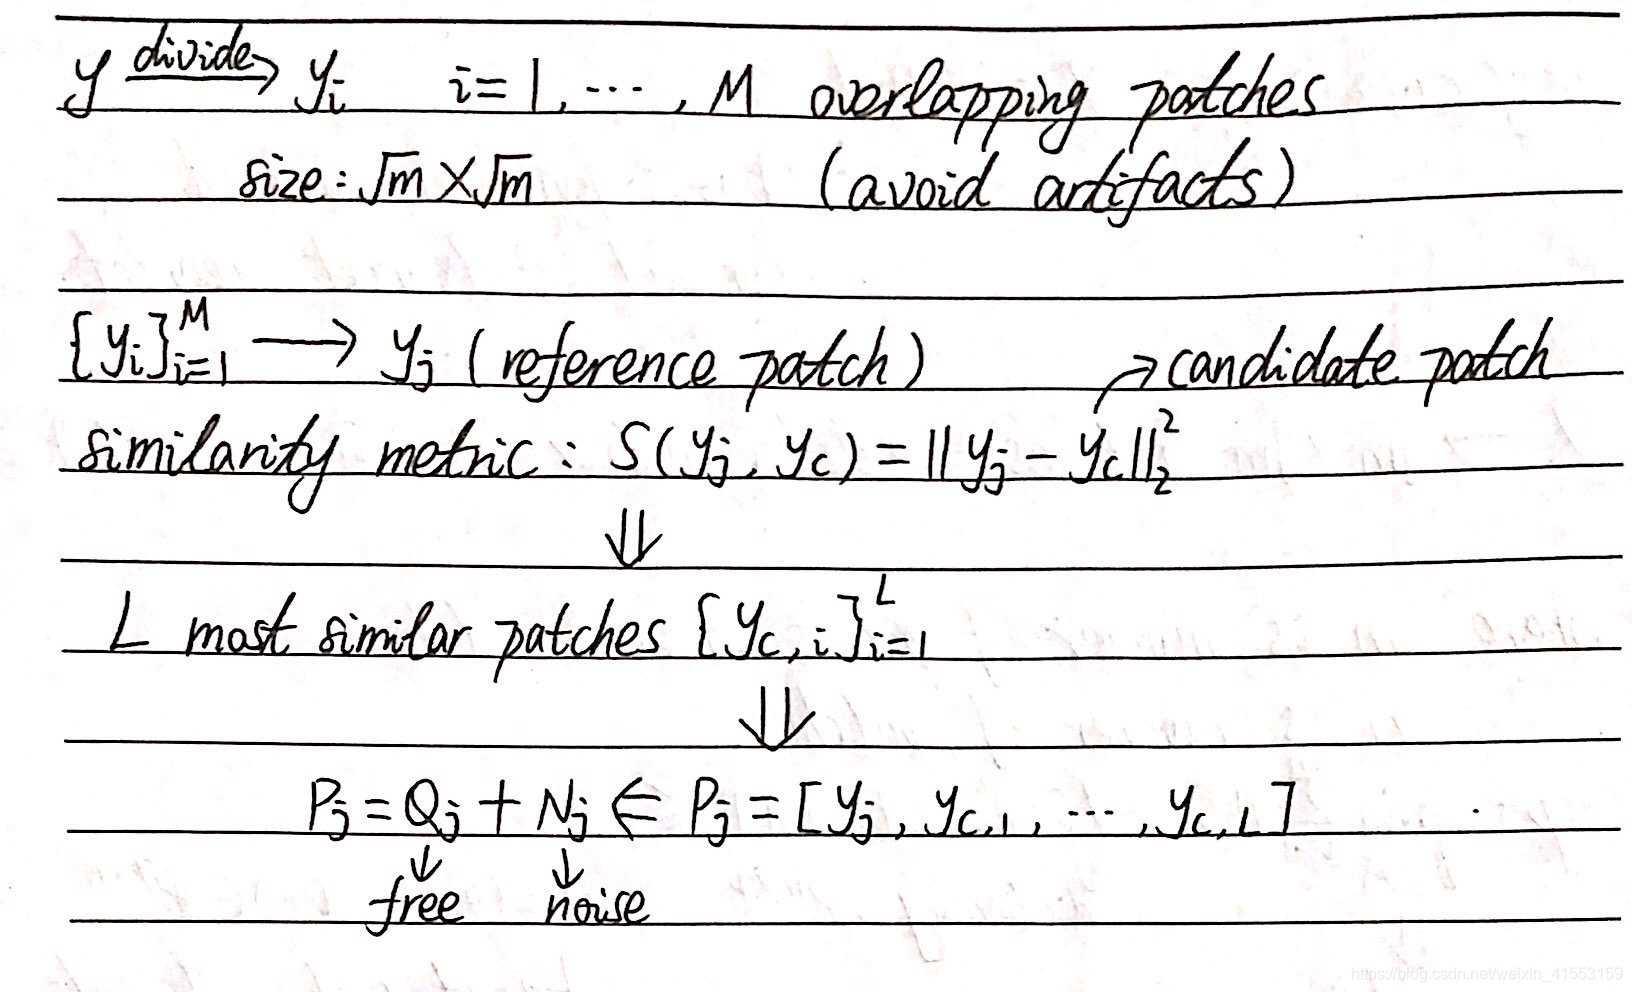 y divide→ y_i i=1,⋯,M overlapping patches
size: √m×√m (avoid artifacts)
{y_i}_{i=1}^M → y_j (reference patch) ↗candidate patch
similarity metric: S(y_j, y_c) = ||y_j - y_c||_2^2
⇓
L most similar patches {y_{c,i}}_{i=1}^L
⇓
P_j = Q_j + N_j ⇐ P_j = [y_j, y_{c,1}, ⋯, y_{c,L}]
↓ ↓
free noise
https://blog.csdn.net/weixin_41553159